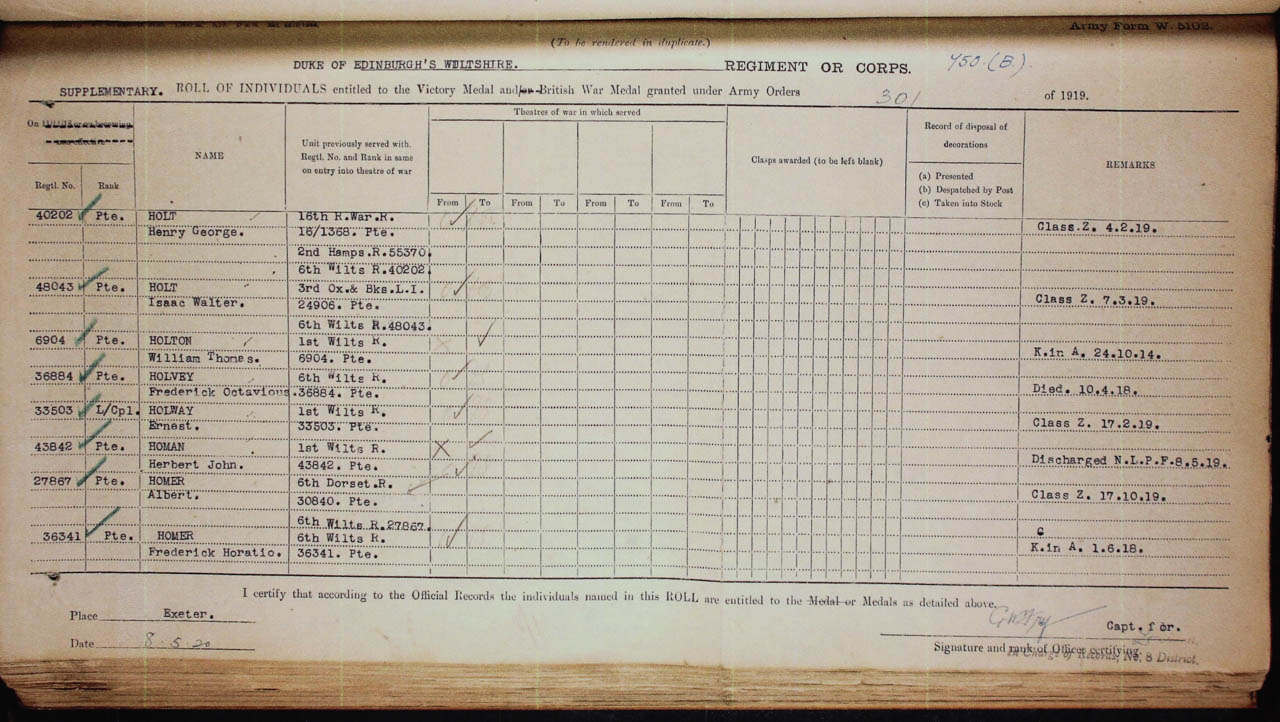 Army Form W. 5102.
(To be rendered in duplicate.)
DUKE OF EDINBURGH'S WILTSHIRE. REGIMENT OR CORPS. 450.(B).
SUPPLEMENTARY. ROLL OF INDIVIDUALS entitled to the Victory Medal and/or British War Medal granted under Army Orders 301 of 1919.
On
Regtl. No. Rank NAME Unit previously served with. Regtl. No. and Rank in same on entry into theatre of war Theatres of war in which served Clasps awarded (to be left blank) Record of disposal of decorations REMARKS
(a) Presented
(b) Despatched by Post
(c) Taken into Stock
From To From To From To From To
40202 Pte. HOLT 16th R.War.R.
Henry George. 16/1368. Pte. Class.Z. 4.2.19.
2nd Hamps.R.55370.
6th Wilts R.40202.
48043 Pte. HOLT 3rd Ox.& Bks.L.I.
Isaac Walter. 24906. Pte. Class Z. 7.3.19.
6th Wilts R.48043.
6904 Pte. HOLTON 1st Wilts R.
William Thomas. 6904. Pte. K.in A. 24.10.14.
36884 Pte. HOLVEY 6th Wilts R.
Frederick Octavious. 36884. Pte. Died. 10.4.18.
33503 L/Cpl. HOLWAY 1st Wilts R.
Ernest. 33503. Pte. Class Z. 17.2.19.
43842 Pte. HOMAN 1st Wilts R.
Herbert John. 43842. Pte. Discharged N.L.P.F.8.5.19.
27867 Pte. HOMER 6th Dorset.R.
Albert. 30840. Pte. Class Z. 17.10.19.
6th Wilts R.27867.
36341 Pte. HOMER 6th Wilts R. G
Frederick Horatio. 36341. Pte. K.in A. 1.6.18.
I certify that according to the Official Records the individuals named in this ROLL are entitled to the Medal or Medals as detailed above.
Place Exeter. Capt. for.
Date 8.5.20 Signature and rank of Officer certifying.
In Charge of Records, No. 8 District.